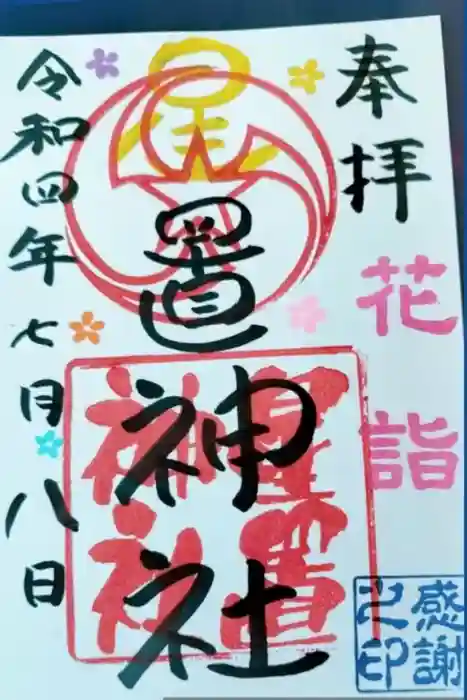 奉拝
花詣
星置神社
星置神社
令和四年七月八日
感謝之印